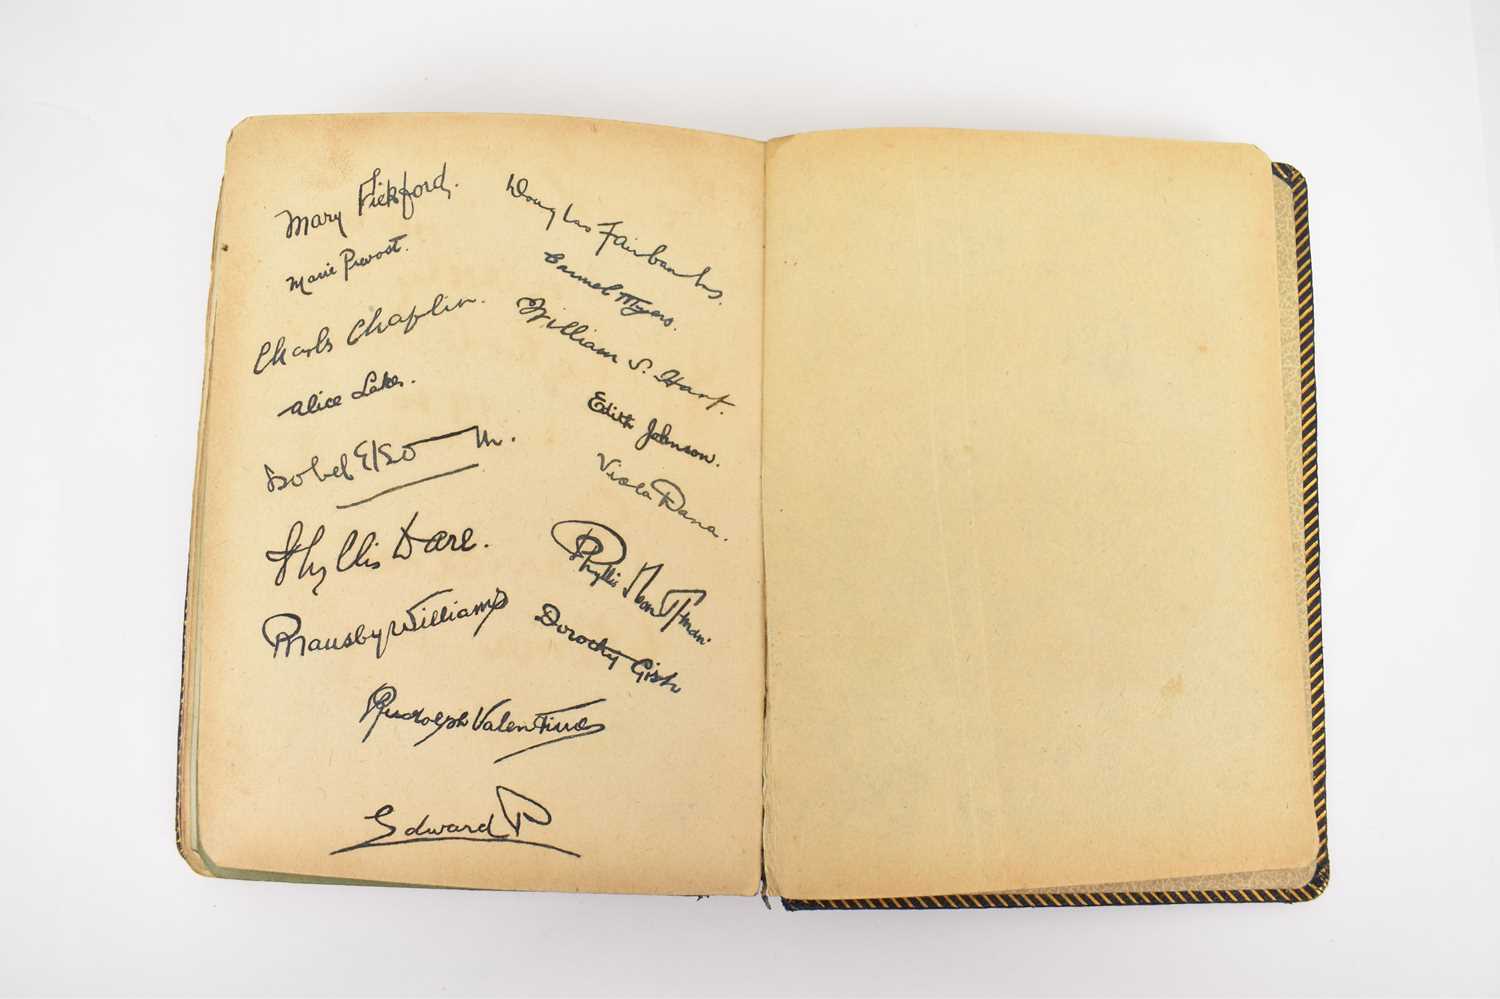 Mary Pickford.
Marie Prevost.
Charls Chaplin.
Alice Lake.
Isobel Elsom.
Phyllis Dare.
Bransby Williams
Douglas Fairbanks.
Carmel Myers.
William S. Hart.
Edith Johnson.
Viola Dana.
Phyllis
Dorothy Gish
Rudolph Valentino
Edward P